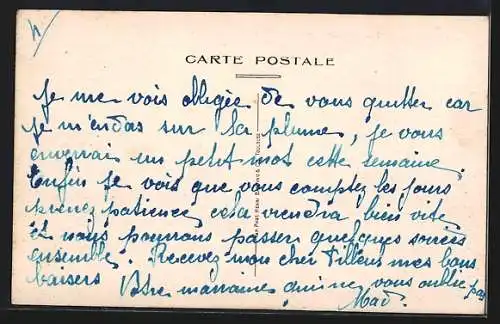 CARTE POSTALE
Je me vois obligée de vous quitter car
je m'endos sur la plume, je vous
enverrai un petit mot cette semaine.
Enfin je vois que vous comptez les jours
prenez patience cela viendra bien vite
et nous pourrons passer quelques soirées
ensemble. Recevez mon cher Tilleus mes bons
baisers Votre marraine qui ne vous oublie pas
Mad.